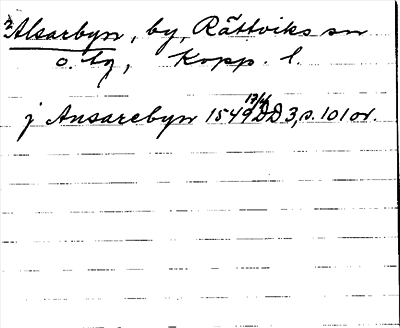 Alsarbyn, by, Rättviks sn
o. tg, Kopp. l.
j Ansarebyn 1549 DD 3, s. 101 or.